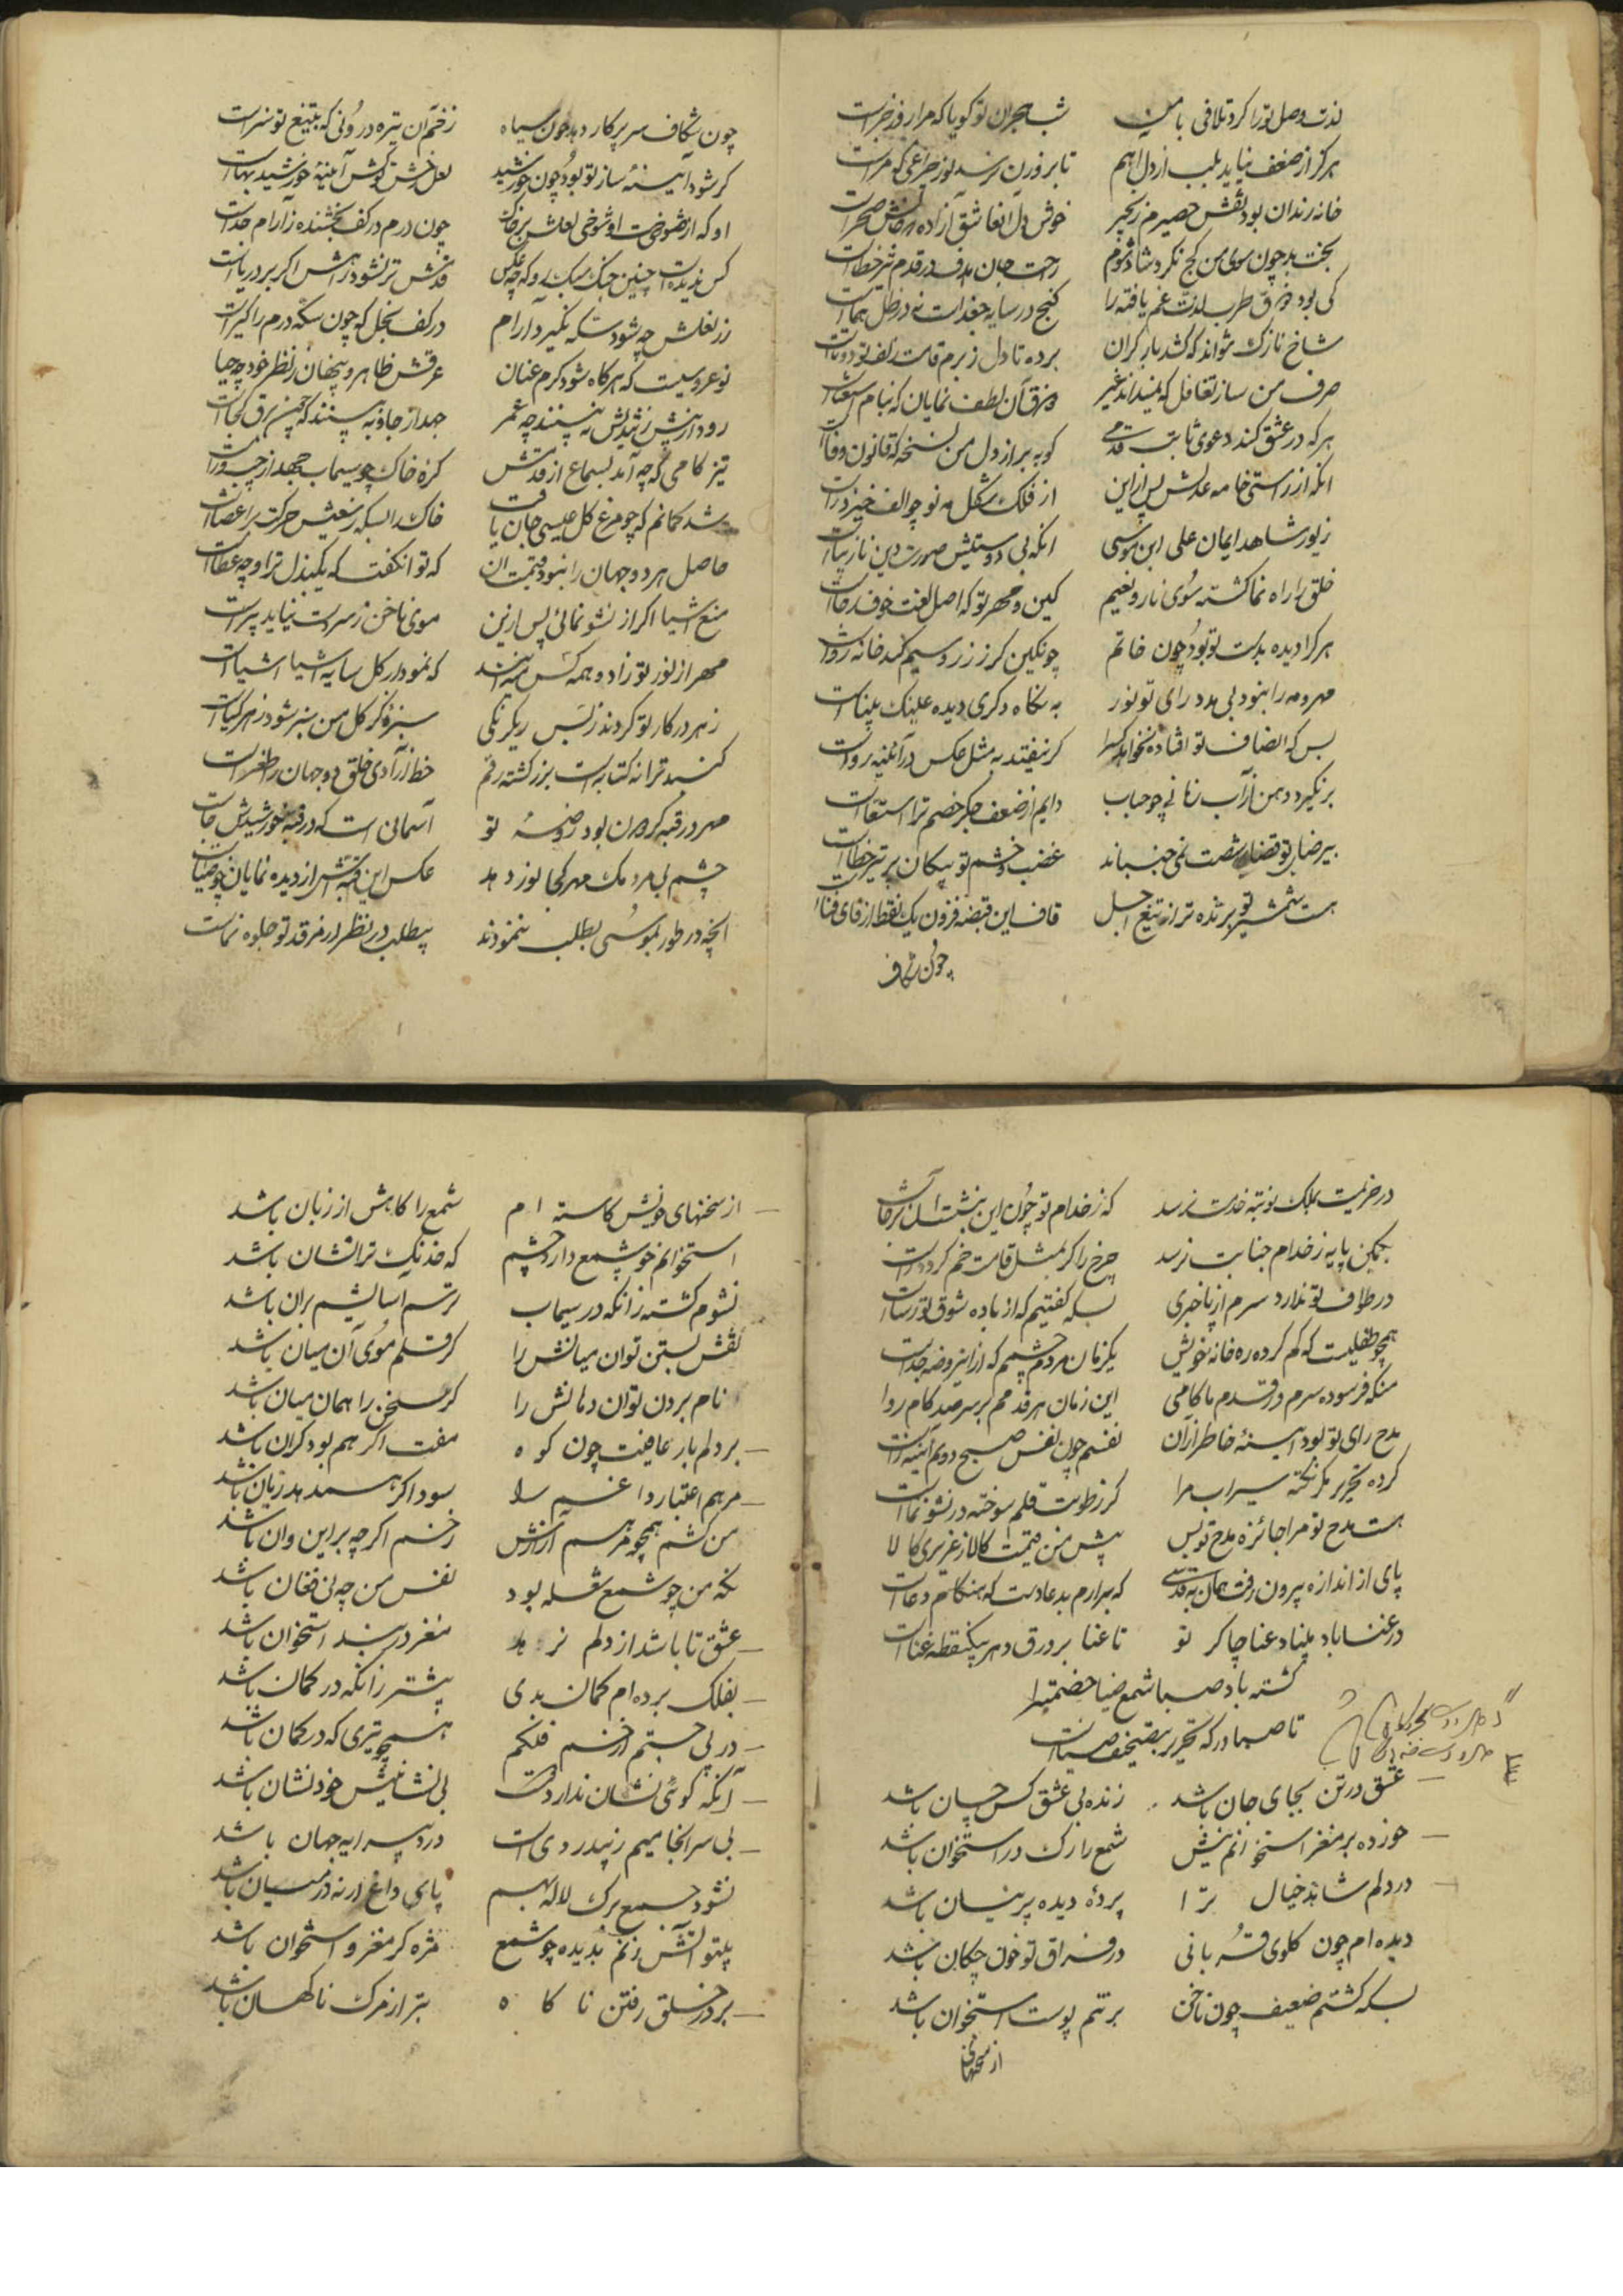 لذت وصل تو را کرد تلافی با من شب هجران تو کویا که مرا روز جزاست
هرکز از ضعف نیاید بلب از دل اهم تا بروزن نرسد نور چراغی کو مراست
خانه زندان بود نقش حصیرم زنجیر خوش دل آن عاشق آزاده که
بخت بد چون سوی من کج نکرد شاد شوم راحت جان هدف در قدم تیر خطاست
کی بود ذوق طرب لذت غم یافته را کنج در سایه جغد است نه در ظل هماست
شاخ نازک نتواند که کشد بار کران برده تا دل ز برم قامت زلف تو دوتاست
صرف من ساز تغافل که نمیداند غیر فرق آن لطف نمایان که
هرکه در عشق کند دعوی ثابت قدمی کو ببر از دل من نسخه که قانون وفاست
انکه از راستی خامه عدلش پس ازاین از فلک شکل مه نو چو الف خیزد راست
زیور شاهد ایمان علی ابن موسی انکه بی دوستیش صورت دین نازیباست
خلق را راه نما کشته سوی نار و نعیم کین و مهر تو که اصل لغت خوف و رجاست
هرکرا دیده بدست تو بود چون خاتم چون نکین کر ز زر و سیم کند خانه رواست
مهر و مه را نبود بی مدد رای تو نور به نکاه دکری دیده عینک بیناست
بس که انصاف تو افتاده نخواهد کس را کر نیفتد به مثل عکس در آئینه رواست
برنکیرد دهن از آب زمانی چو حباب دایم از ضعف جکر خصم ترا استسقاست
بیرضای تو قضا شصت نمی جنباند غضب و خشم تو پیکان پر تیر خطاست
هست شمشیر تو برنده تر از تیغ اجل قاف این قبضه فزون یک نقط از فای فناست
چون شکاف
چون شکاف سر پرکار دهد خون سیاه زخم آن تیره درونی که بتیغ تو سزاست
کر شود آینه ساز تو بود چون خورشید نعل رخش تو کش آینه خورشید بهاست
او که از شوخی لعلش برخاست چون درم در کف بخشنده ز آرام جداست
کس ندیدست چنین سبک رو که چو عکس قدمش تر نشود در رهش اکر بر دریاست
زر نعلش چه شود سکه نکیرد آرام در کف بخل که چون سکه درم را کیراست
نوعروسیست که هرکاه شود کرم عنان عرقش ظاهر و پنهان ز نظر خود چو حیاست
رود از پیش نه بینند چه عمر جهد از جا و به بینند که چون برق کجاست
تیز کامی که چه آمد بسماع از قدمش کره خاک چو سیماب جهد از چپ و راست
شد کمانم که چو مرغ کل عیسی جان یافت خاک را بسکه حرکت بر اعضاست
حاصل هر دو جهان را نبود قیمت ان که توانکفت که یک بذل ترا وجه عطاست
منع اشیا اکر از نشو نمائی پس ازین موی ناخن ز سر دست نیاید پیراست
مهر از نور تو زاد و همه کس میداند که نمودار کل سایه اشیا اشیاست
زهر در کار تو کردند ز بس یکرنکی سبزه کز کل من سبز شود زهر کیاست
کنبد ترا نه کتابه است بزر کشته رقم خط آزادی خلق دو جهان را طغراست
مهر در قبه کردان بود روضه تو آسمانی است که در قبه خورشیدش جاست
چشم بی مردمک مهر کجا نور دهد عکس این قبه اش از دیده نمایان چو ضیاست
انچه در طور بموسی بطلب ننمودند بیطلب در نظر از مرقد تو جلوه نماست
در حریمت بملک نوبت خدمت نرسد که ز خدام تو چون این بنشست آن برخاست
پایه ز خدام جنابت نرسد چرخ را کر بمثل قامت خم کردد راست
در طواف تو ندارد سرم از پا خبری بسکه کفتیم که از باده شوق تو رساست
همچو طفلیست که کم کرده ره خانه خویش یکزمان مردم چشمم که ازاین روضه جداست
منکه فرسوده سرم در قدم ناکامی این زمان هر قدمم بر سر صد کام رواست
مدح رای تو بود آینه خاطر ازان نفسم چون نفس صبح دوم آینه زاست
کرده تحریر مکر نکته سیراب مرا کز رطوبت قلم سوخته در نشو نماست
هست مدح تو مرا جائزه مدح تو بس پیش من قیمت کالا ز عزیزی کالا
پای از اندازه بیرون رفت همان به قدسی که برارم ید عادت که هنکام دعاست
در عناباد بیناد عنا چاکر تو تا غنا بر ورق دهر بیک نقطه عناست
کشته باد صبا شمع ضیا خصمت را
تا صبا در که تحریر بتصحیف ضیاست
عشق در تن بجای جان باشد زنده بی عشق کس چسان باشد
خورده بر مغز استخوانم نیش شمع را رک در استخوان باشد
در دلم شاهد خیال ترا پردهٔ دیده پرنیان باشد
دیده ام چون کلوی قربانی در فراق تو خون چکان باشد
بسکه کشتم ضعیف چون ناخن بر تنم پوست استخوان باشد
از سخنهای
از سخنهای خویش کاسته ام شمع را کاهش از زبان باشد
استخوانم چو شمع دارد چشم که خدنک ترا نشان باشد
نشوم کشته زانکه در سیماب ترسم آسایشم بران باشد
نقش بستن توان میانش را کر قلم موی آن میان باشد
نام بردن توان دهانش را کر سخن را همان میان باشد
بر دلم بار عافیت چون کوه مفت اکر هم بود کران باشد
مرهم اعتبار داغم را سود اکر میدهد زیان باشد
من کشم همچو مرهم آزارش زخم اکرچه بر این و ان باشد
نکه من چو شمع شعله بود نفس من چه نی فغان باشد
عشق تا باشد از دلم نرهد مغز در بند استخوان باشد
بفلک برده ام کمان بدی پیشتر زانکه در کمان باشد
در پی جستم از خم فلکم همچو تیری که در کمان باشد
آنکه کوئی نشان ندارد دوست بی نشانیش خود نشان باشد
بی سرانجامیم ز بیدردی است درد پیرایه جهان باشد
نشود جمع برک لاله بهم پای داغ ار نه در میان باشد
پلتو آتش زنم بدیده چو شمع مژه کر مغز و استخوان باشد
بر در خلق رفتن ناکاه بتر از مرک ناکهان باشد